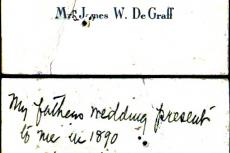 Mrs. James W. De Graff
My fathers wedding present
to me in 1890